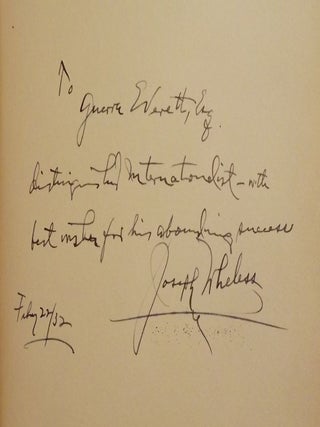 To
Guerra Everett, Esq.
distinguished Internationalist – with
best wishes for his abounding success
Joseph Wheless
Feby 22/32